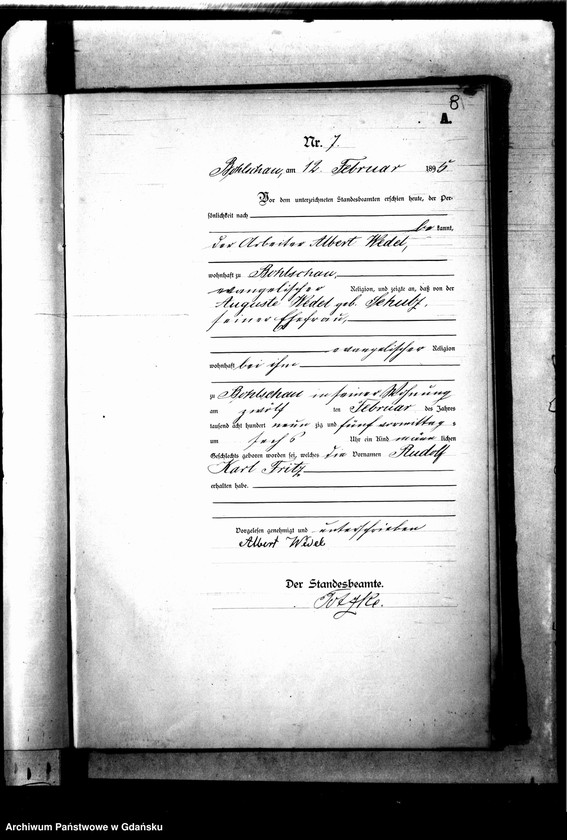 8
A.
Nr. 7.
Bohlschau, am 12 Februar 1895
Vor dem unterzeichneten Standesbeamten erschien heute, der Per-
sönlichkeit nach
be kannt,
der Arbeiter Albert Wedel,
wohnhaft zu Bohlschau,
evangelischer Religion, und zeigte an, daß von der
Auguste Wedel geb. Schulz,
seiner Ehefrau,
evangelischer Religion
wohnhaft bei ihm
zu Bohlschau in seiner Wohnung
am zwölf ten Februar des Jahres
tausend acht hundert neun zig und fünf vormittags
um sechs Uhr ein Kind männ lichen
Geschlechts geboren worden sei, welches die Vornamen Rudolf
Karl Fritz
erhalten habe.
Vorgelesen, genehmigt und unterschrieben
Albert Wedel
Der Standesbeamte.
Archiwum Państwowe w Gdańsku